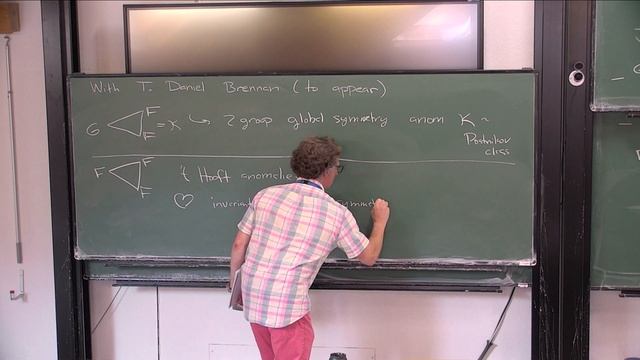 With T. Daniel Brennan (to appear)
G F F = K ↪ 2 group global symmetry anom K ~
Postnikov
class
F F F 't Hooft anomalie
♡ invarian symmet